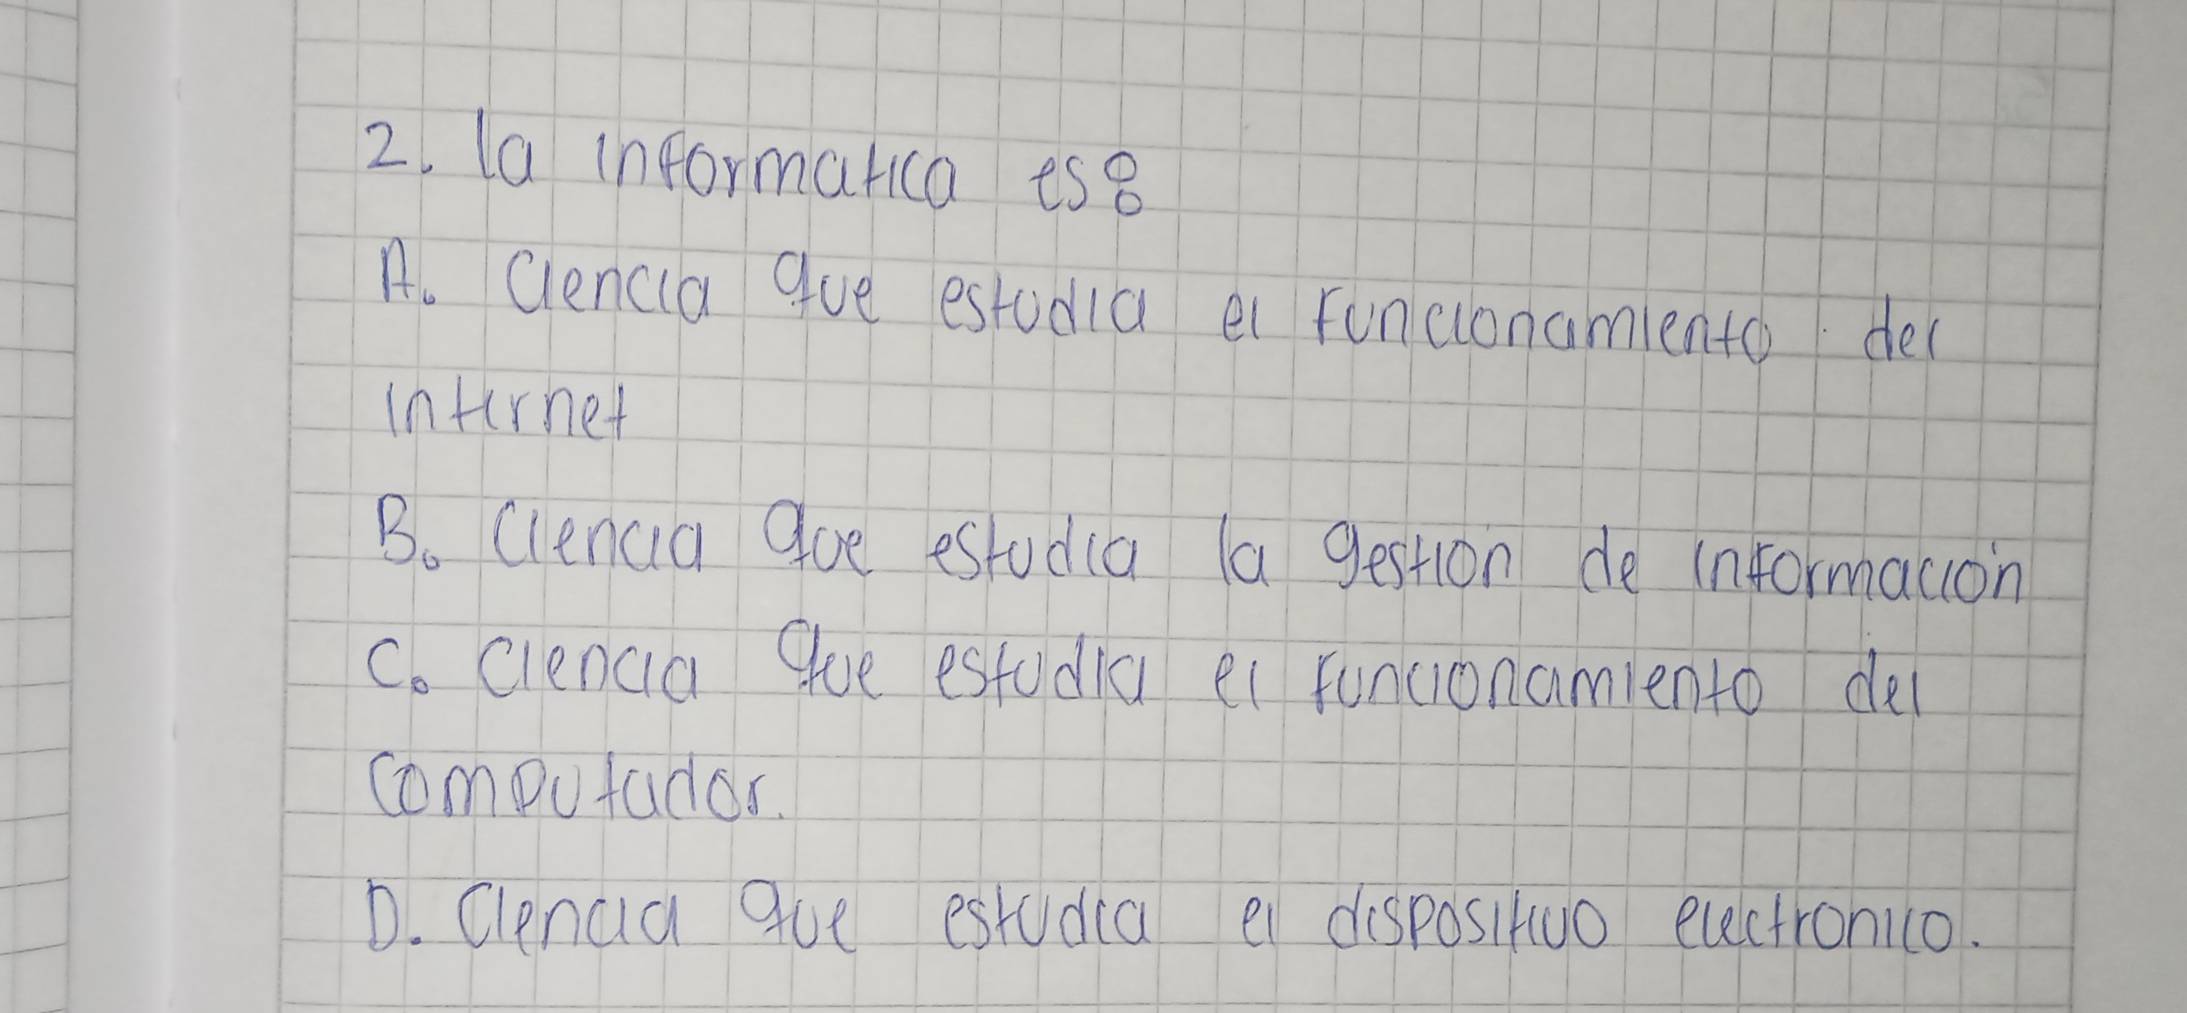 2. la informatica es:
A. Ciencia que estudia el funcionamiento del
internet
B. Ciencia que estudia la gestion de información
C. Ciencia que estudia el funcionamiento del
computador.
D. Ciencia que estudia el dispositivo electronico.